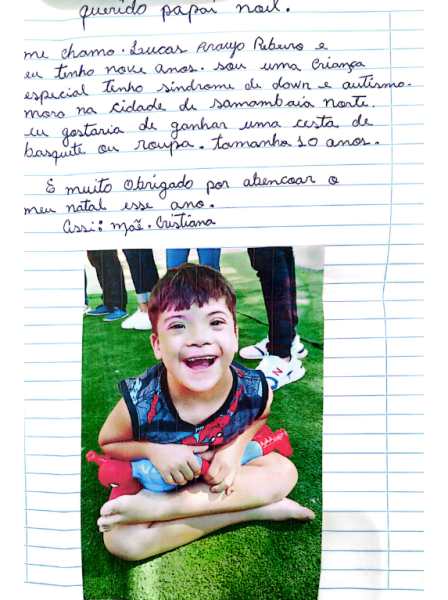 querido papai noel.
me chamo. Lucas Araujo Ribeiro e
eu tenho nove anos. sou uma criança
especial tenho sindrome de down e autismo.
moro na cidade de samambaia norte.
eu gostaria de ganhar uma cesta de
basquite ou roupa. tamanho 10 anos.
E muito obrigado por abencoar o
meu natal esse ano.
assi: maẽ. Cristiana
N